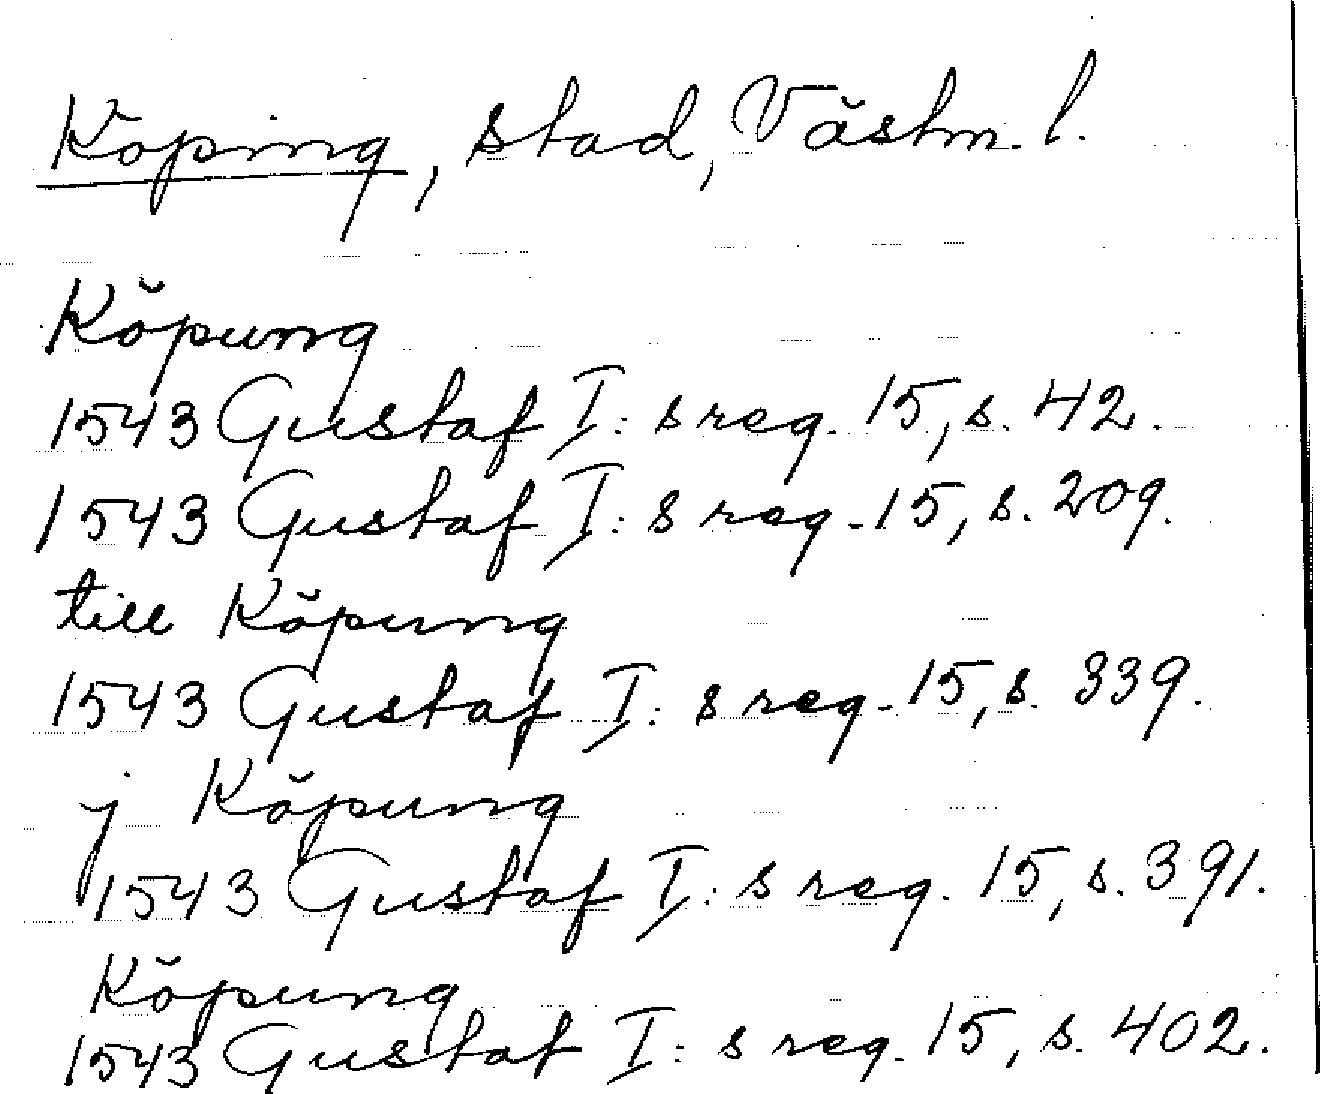 Köping, stad, Västm. l.
Köpung
1543 Gustaf I:s reg. 15, s. 42.
1543 Gustaf I:s reg. 15, s. 209.
till Köpung
1543 Gustaf I:s reg. 15, s. 339.
j Köpung
1543 Gustaf I:s reg. 15, s. 391.
Köpung
1543 Gustaf I:s reg. 15, s. 402.